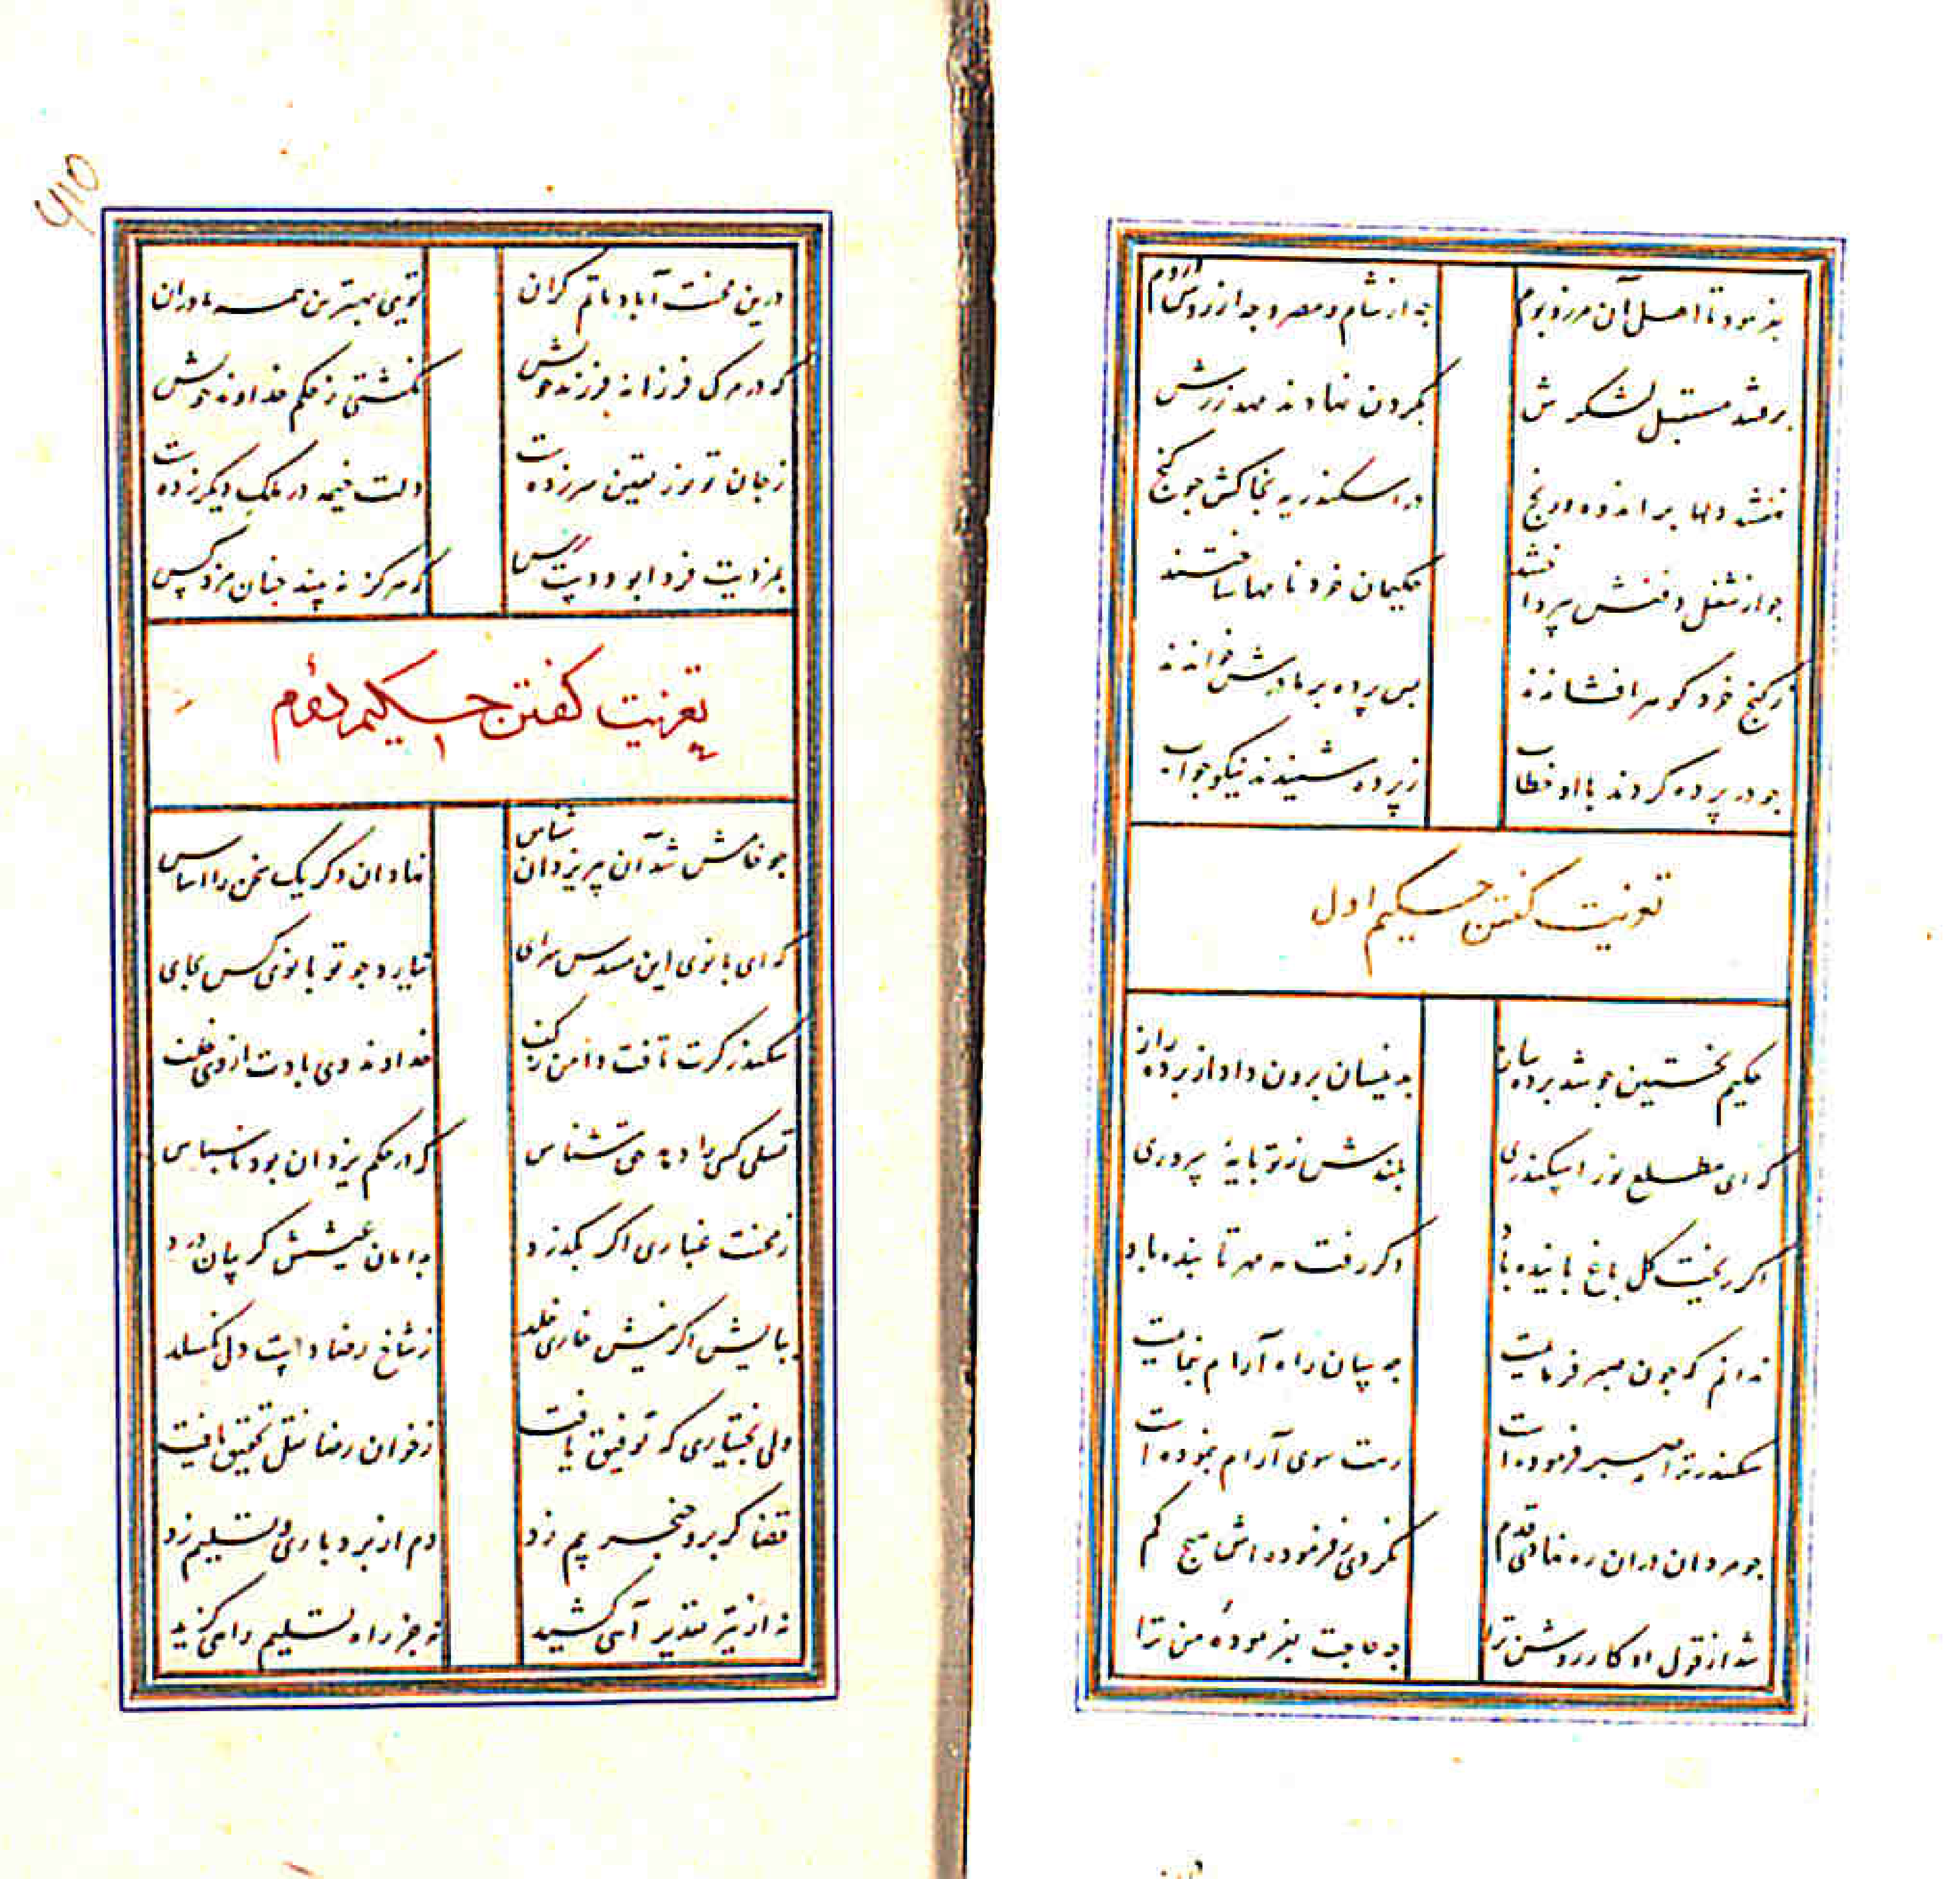 بفرمود تا اهل آن مرز و بوم چه از شام و مصر و چه از روس و روم
برفتند مستقبل لشکرش بگردن نهادند مهد زرش
نهفتند دلها پر اندوه و رنج در اسکندریه بخاکش چو گنج
چو از شغل دفنش بپرداختند حکیمان خردنامها ساختند
ز گنج خرد گوهر افشاندند پس پرده بر مادرش خواندند
چو در پرده کردند با او خطاب ز پرده شنیدند نیکو جواب
تعزیت گفتن حکیم اول
حکیم نخستین چو شد پرده ساز بدینسان برون داد از پرده راز
که ای مطلع نور اسکندری بلندش ز تو پایهٔ سروری
اگر ریخت گل باغ پاینده باد وگر رفت مه مهر تابنده باد
ندانم که چون صبر فرمایمت چه سان راه آرام بنمایمت
سکندر ترا صبر فرموده است رهت سوی آرام بنموده است
چو مردان دران ره نهادی قدم نکردی ز فرموده اش هیچ کم
شد از قول او کار روشن ترا چه حاجت بفرمودهٔ من ترا
۴۱۵
درین محنت آباد ماتم گران تویی بهترین همه مادران
که در مرگ فرزانه فرزند خویش نگشتی ز حکم خداوند خویش
ز جان تو نور یقین سر زدست دلت خیمه در ملک دیگر زدست
بمزدیت فردا بود دست رس که هرگز نبیند چنان مزد کس
تعزیت گفتن حکیم دوم
چو خامش شد آن پیر یزدان شناس نهاد آن دگر یک سخن را اساس
که ای بانوی این مسدس سرای نیارد چو تو بانوی کس بجای
سکندر گرت تافت دامن ز کف خداوند وی بادت از وی خلف
تسلی کس را دهد حق شناس که در حکم یزدان بود ناسپاس
ز محنت غباری اگر بگذرد بدامان عیشش گریبان درد
بپایش اگر نیش خاری خلد ز شاخ رضا دست دل بگسلد
ولی بختیاری که توفیق یافت ز خوان رضا نقل تحقیق یافت
قضا گر برو خنجر بیم زد دم از بردباری و تسلیم زد
نه از تیر تقدیر آهی کشید نه جز راه تسلیم راهی گزید